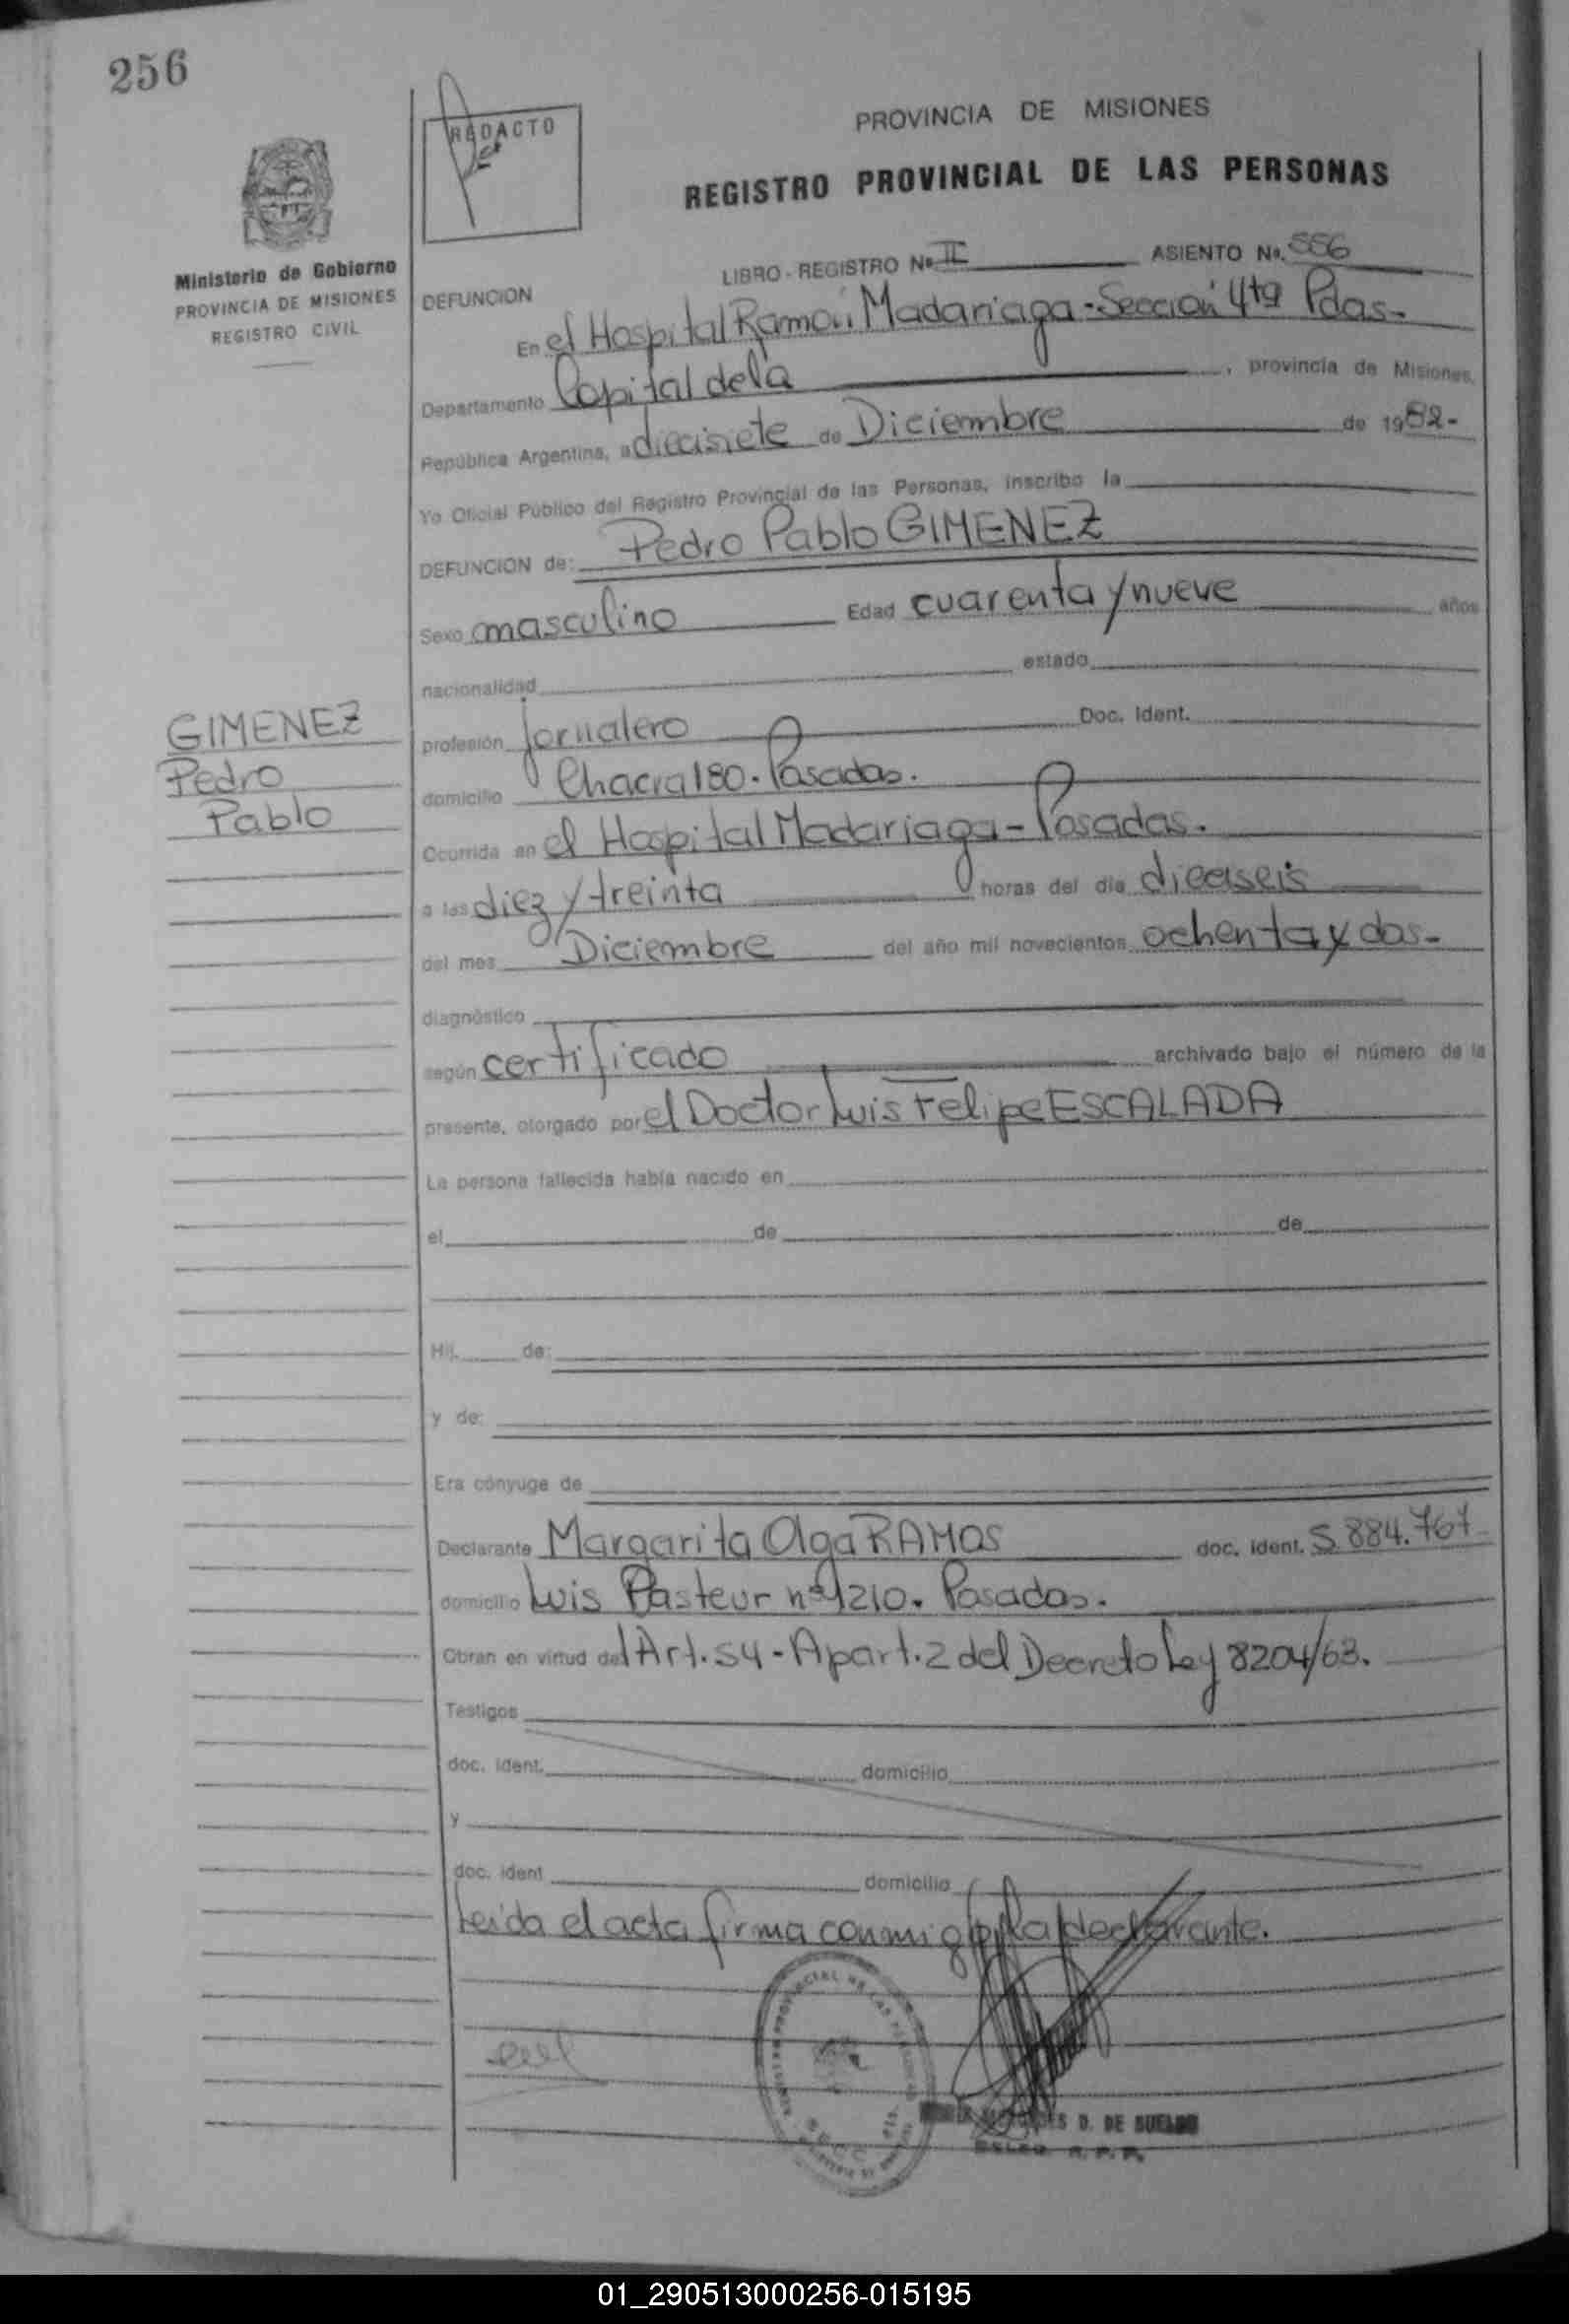 256
REDACTO
PROVINCIA DE MISIONES
REGISTRO PROVINCIAL DE LAS PERSONAS
Ministerio de Gobierno
PROVINCIA DE MISIONES
REGISTRO CIVIL
LIBRO - REGISTRO Nº II ASIENTO Nº. 556
DEFUNCION
En el Hospital Ramón Madariaga - Sección 4ta Pdas.-
Departamento Capital de la , provincia de Misiones,
República Argentina, a diecisiete de Diciembre de 1982-
Yo Oficial Público del Registro Provincial de las Personas, inscribo la
DEFUNCION de: Pedro Pablo GIMENEZ
Sexo masculino Edad cuarenta y nueve años
nacionalidad estado
GIMENEZ
Pedro
Pablo
profesión jornalero Doc. Ident.
domicilio Chacra 180. Posadas.
Ocurrida en el Hospital Madariaga - Posadas.
a las diez y treinta horas del día dieciseis
del mes Diciembre del año mil novecientos ochenta y dos-
diagnóstico
según certificado archivado bajo el número de la
presente, otorgado por el Doctor Luis Felipe ESCALADA
La persona fallecida había nacido en
el de de
Hij. de:
y de:
Era cónyuge de
Declarante Margarita Olga RAMOS doc. ident. 5.884.767
domicilio Luis Pasteur nº 1210. Posadas.
Obran en virtud del Art. 54 - Apart. 2 del Decreto Ley 8204/63.
Testigos
doc. ident. domicilio
y
doc. ident domicilio
Leida el acta firma conmigo la declarante.
D. DE
R. P. P.
01_290513000256-015195